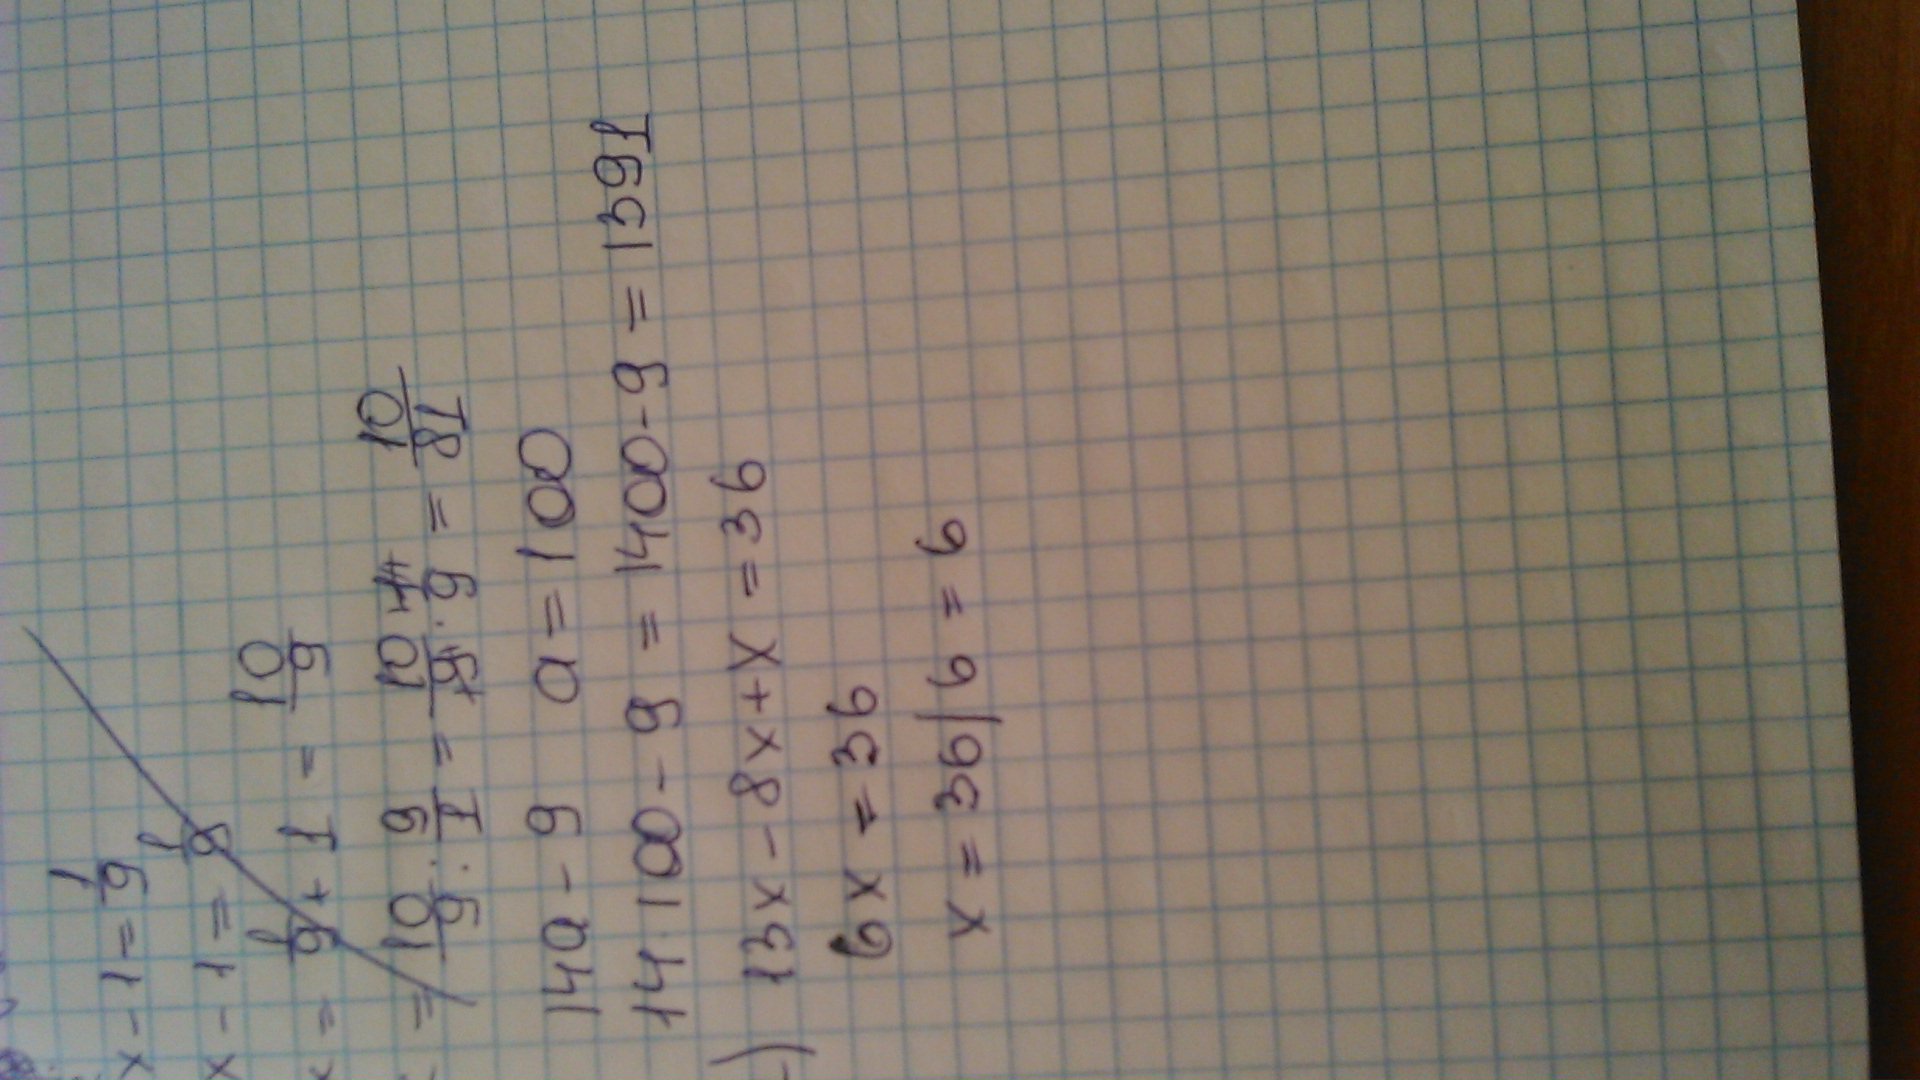 x - 1 = 1/9
x - 1 = 1/9
x = 1/9 + 1 = 10/9
= 10/9 · 9/1 = 10/9 · 9 = 10/81
14a - 9 a = 100
14 · 100 - 9 = 1400 - 9 = 1391
) 13x - 8x + x = 36
6x = 36
x = 36 | 6 = 6